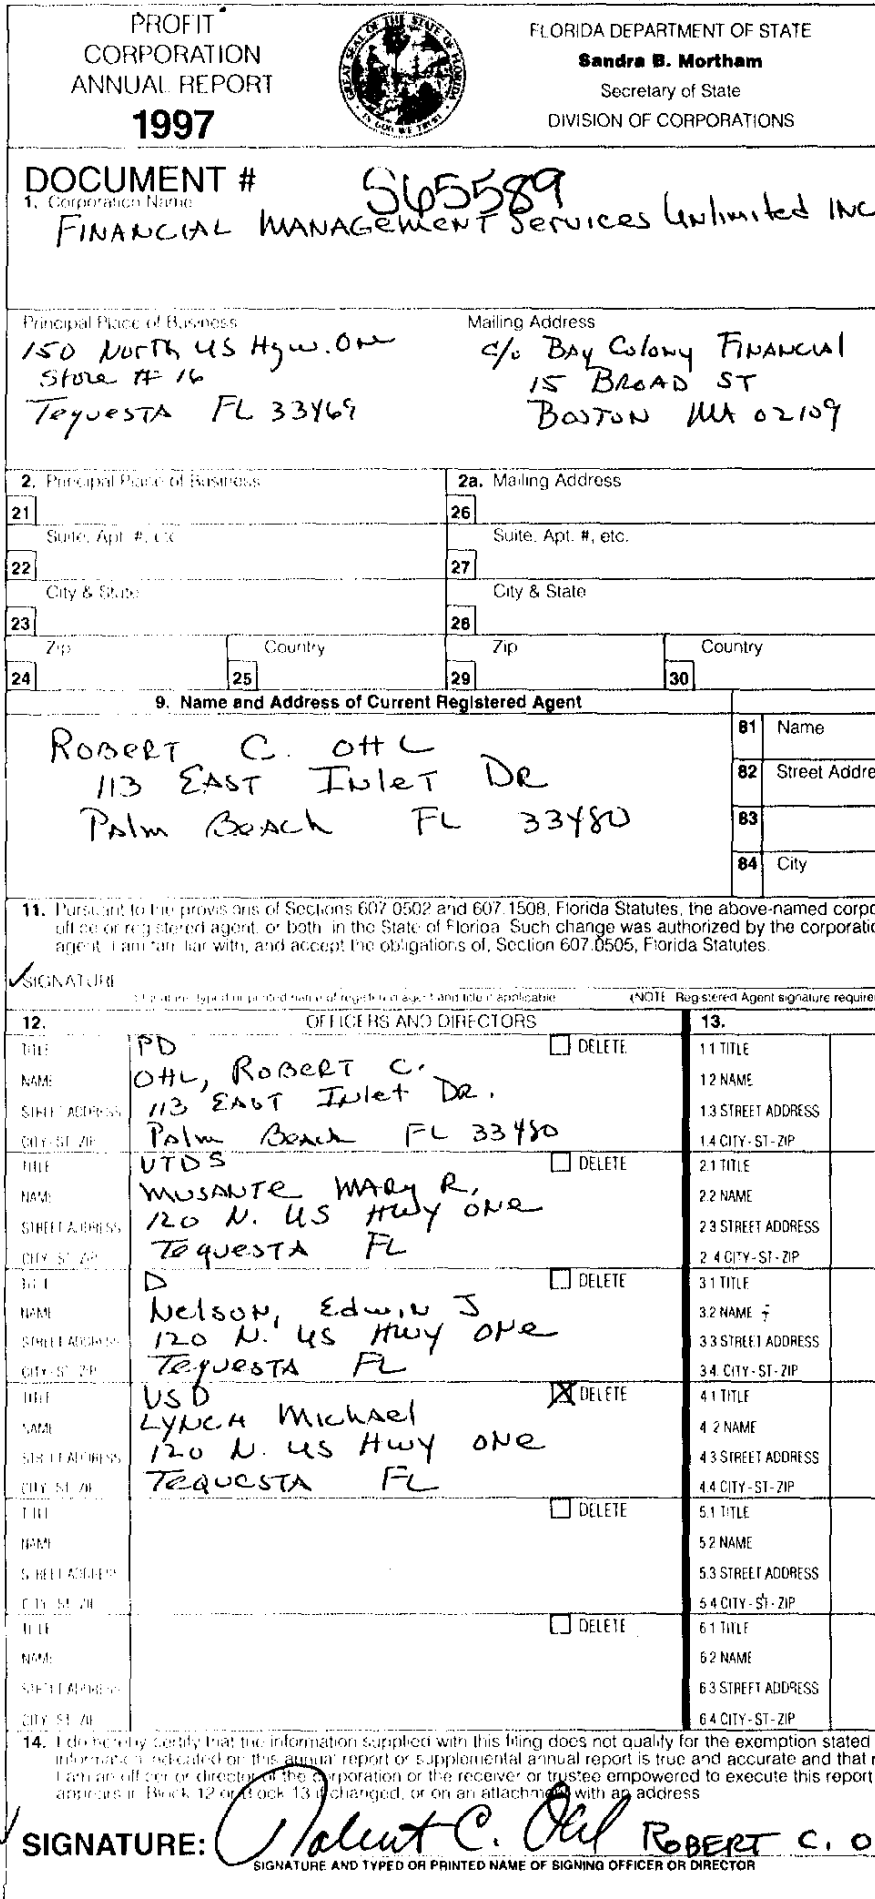 PROFIT
CORPORATION
ANNUAL REPORT
1997
GREAT SEAL OF THE STATE OF FLORIDA
IN GOD WE TRUST
FLORIDA DEPARTMENT OF STATE
Sandra B. Mortham
Secretary of State
DIVISION OF CORPORATIONS
DOCUMENT # S65589
1. Corporation Name
FINANCIAL MANAGEMENT Services Unlimited INC
Principal Place of Business
150 North US Hgw. One
Store # 16
Tequesta FL 33469
Mailing Address
c/o Bay Colony Financial
15 BROAD ST
BOSTON MA 02109
2. Principal Place of Business
2a. Mailing Address
21
26
Suite, Apt. #, etc.
Suite, Apt. #, etc.
22
27
City & State
City & State
23
28
Zip
Country
Zip
Country
24
25
29
30
9. Name and Address of Current Registered Agent
ROBERT C. OHL
113 EAST Inlet DR
Palm Beach FL 33480
81 Name
82 Street Addre
83
84 City
11. Pursuant to the provisions of Sections 607.0502 and 607.1508, Florida Statutes, the above-named corpo
office or registered agent, or both, in the State of Florida. Such change was authorized by the corporatio
agent. I am familiar with, and accept the obligations of, Section 607.0505, Florida Statutes.
SIGNATURE
Signature, typed or printed name of registered agent and title if applicable
(NOTE Registered Agent signature require
12. OFFICERS AND DIRECTORS
13.
TITLE PD DELETE
NAME OHL, ROBERT C.
STREET ADDRESS 113 EAST Inlet DR.
CITY-ST-ZIP Palm Beach FL 33480
1.1 TITLE
1.2 NAME
1.3 STREET ADDRESS
1.4 CITY-ST-ZIP
TITLE VTDS DELETE
NAME MUSANTE MARY R.
STREET ADDRESS 120 N. US HWY ONE
CITY-ST-ZIP TEQUESTA FL
2.1 TITLE
2.2 NAME
2.3 STREET ADDRESS
2.4 CITY-ST-ZIP
TITLE D DELETE
NAME Nelson, Edwin J
STREET ADDRESS 120 N. US HWY ONE
CITY-ST-ZIP TEQUESTA FL
3.1 TITLE
3.2 NAME
3.3 STREET ADDRESS
3.4. CITY-ST-ZIP
TITLE VSD X DELETE
NAME LYNCH Michael
STREET ADDRESS 120 N. US Hwy ONE
CITY-ST-ZIP TEQUESTA FL
4.1 TITLE
4.2 NAME
4.3 STREET ADDRESS
4.4 CITY-ST-ZIP
TITLE DELETE
NAME
STREET ADDRESS
CITY-ST-ZIP
5.1 TITLE
5.2 NAME
5.3 STREET ADDRESS
5.4 CITY-ST-ZIP
TITLE DELETE
NAME
STREET ADDRESS
CITY-ST-ZIP
6.1 TITLE
6.2 NAME
6.3 STREET ADDRESS
6.4 CITY-ST-ZIP
14. I do hereby certify that the information supplied with this filing does not qualify for the exemption stated
information indicated on this annual report or supplemental annual report is true and accurate and that
I am an officer or director of the corporation or the receiver or trustee empowered to execute this report
appears in Block 12 or Block 13 if changed, or on an attachment with an address
SIGNATURE: Robert C. Ohl ROBERT C. O
SIGNATURE AND TYPED OR PRINTED NAME OF SIGNING OFFICER OR DIRECTOR